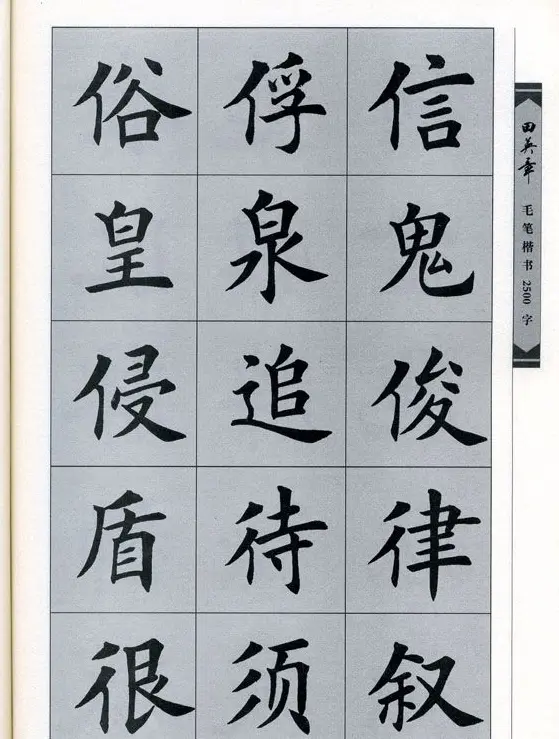 俗俘信
皇泉鬼
侵追俊
盾待律
很须叙
田英章 毛笔楷书2500字